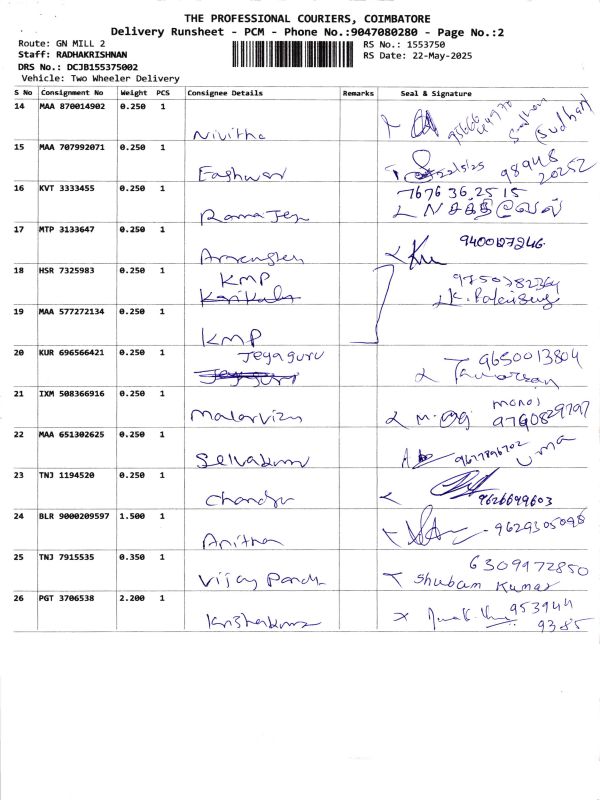 THE PROFESSIONAL COURIERS, COIMBATORE
Delivery Runsheet - PCM - Phone No.:9047080280 - Page No.:2
Route: GN MILL 2
RS No.: 1553750
Staff: RADHAKRISHNAN
RS Date: 22-May-2025
DRS No.: DCJB155375002
Vehicle: Two Wheeler Delivery
S No Consignment No Weight PCS Consignee Details Remarks Seal & Signature
14 MAA 870014902 0.250 1
Nivitha
Sudhan
(Sudhan)
15 MAA 707992071 0.250 1
Eashwar
22/5/25 98948
20252
16 KVT 3333455 0.250 1
7676362515
Rama Jey
N சக்திவேல்
17 MTP 3133647 0.250 1
9400127246
18 HSR 7325983 0.250 1
KMP
9750782364
19 MAA 577272134 0.250 1
KMP
20 KUR 696566421 0.250 1
Jeyaguru
9650013804
21 IXM 508366916 0.250 1
manoj
Malarvizhi
9790829797
22 MAA 651302625 0.250 1
Selvakumar
9677896702 uma
23 TNJ 1194520 0.250 1
Chandru
9626699603
24 BLR 9000209597 1.500 1
Anitha
9629305096
25 TNJ 7915535 0.350 1
6309972850
Vijay Pandi
Shubam Kumar
26 PGT 3706538 2.200 1
953944
Krishakumar
9385